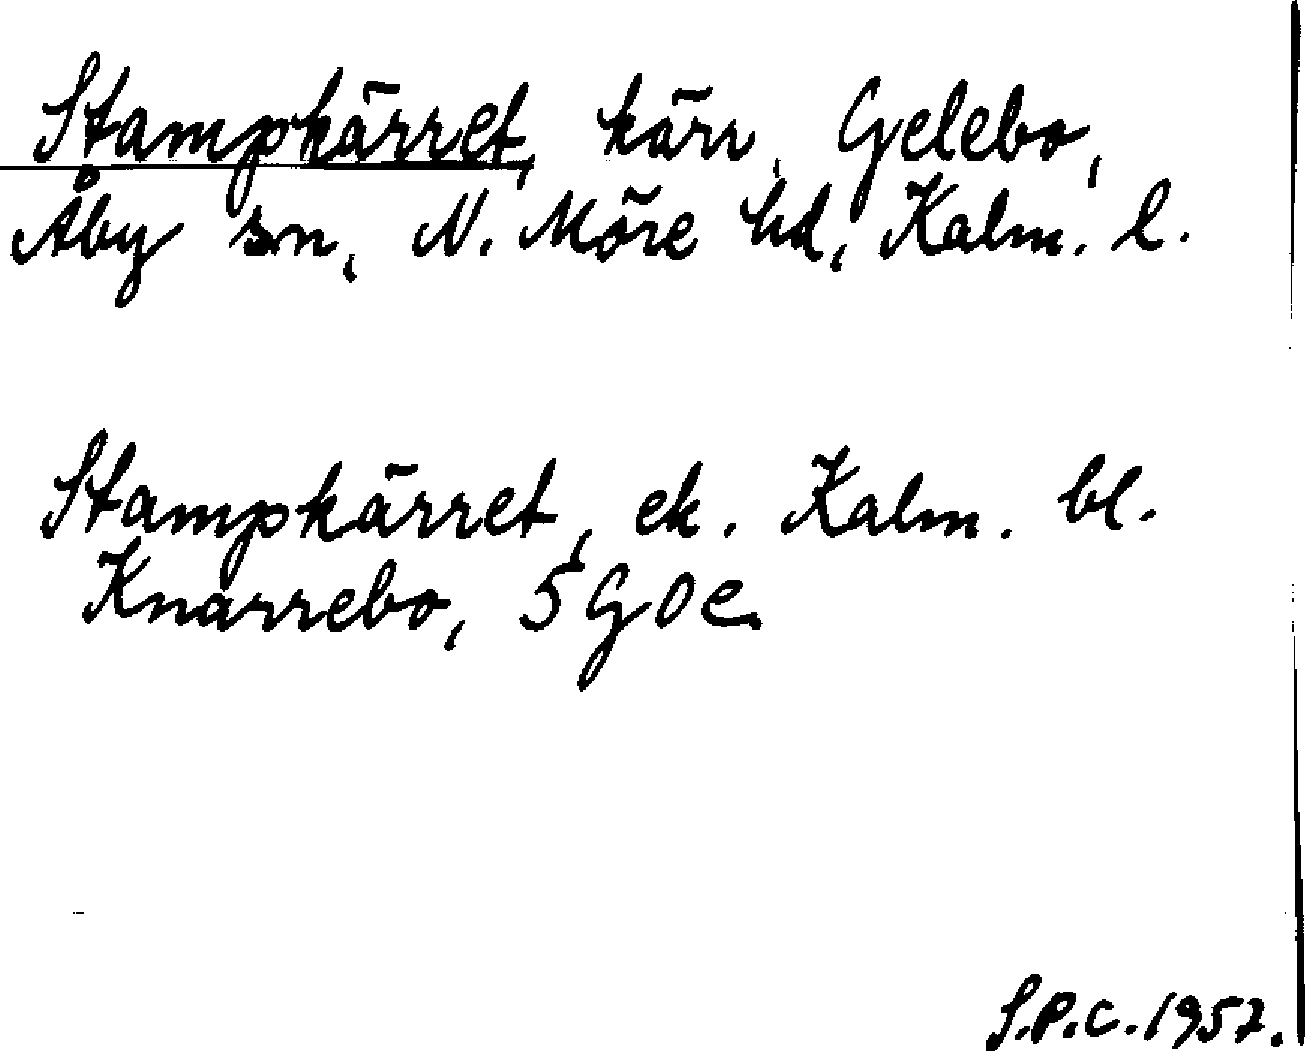 Stampkärret, kärr, Gelebo,
Åby sn, N. Möre hd, Kalm. l.
Stampkärret, ek. Kalm. bl.
Knarrebo, 5 G 0 e.
S.P.C. 1957.